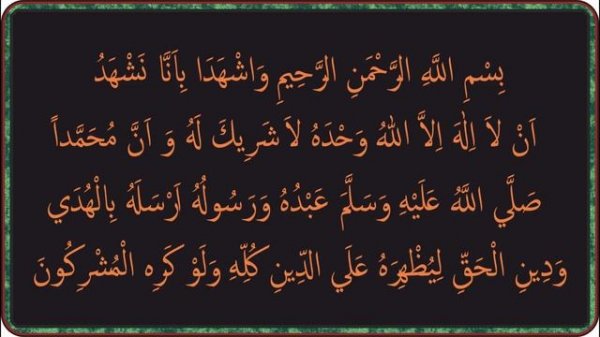 بِسْمِ اللَّهِ الرَّحْمَنِ الرَّحِيمِ وَاشْهَدَا بِاَنَّا نَشْهَدُ
اَنْ لاَ اِلٰهَ اِلاَّ اللّٰهُ وَحْدَهُ لاَ شَرِيكَ لَهُ وَ اَنَّ مُحَمَّداً
صَلَّي اللَّهُ عَلَيْهِ وَسَلَّمَ عَبْدُهُ وَرَسُولُهُ اَرْسَلَهُ بِالْهُدَي
وَدِينِ الْحَقِّ لِيُظْهِرَهُ عَلَي الدِّينِ كُلِّهِ وَلَوْ كَرِهِ الْمُشْرِكُونَ